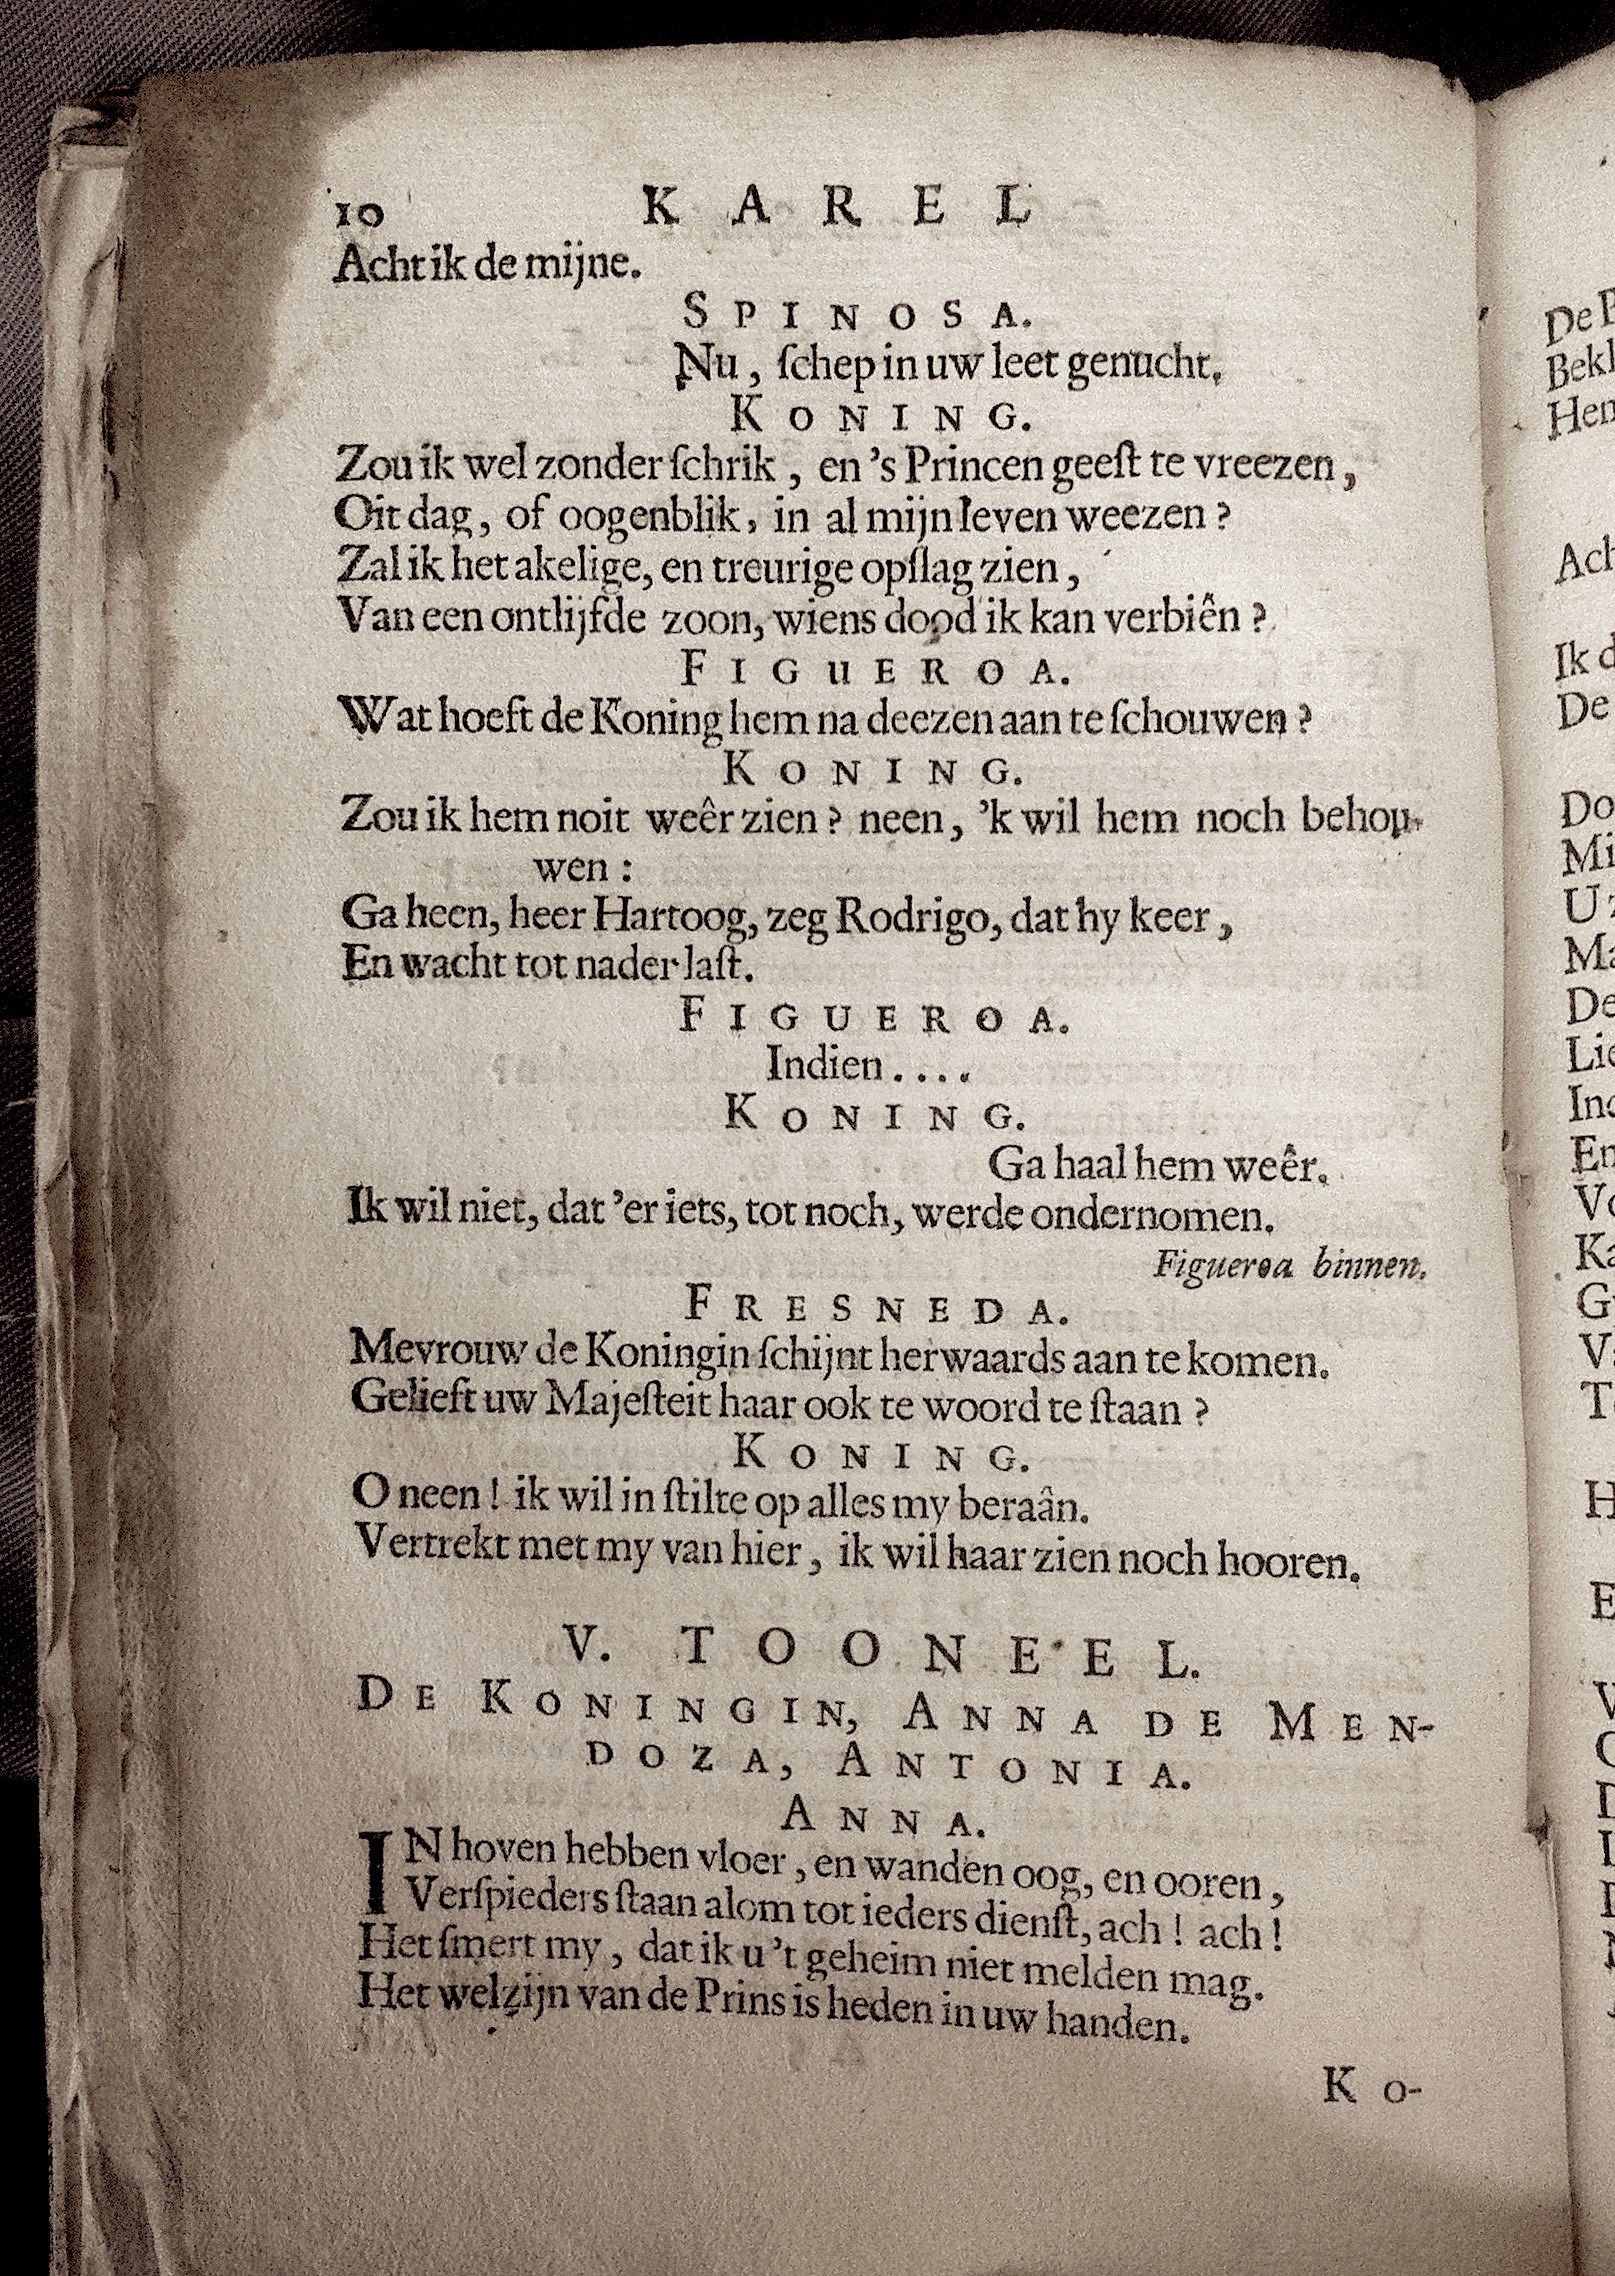 10 KAREL
Acht ik de mijne.
SPINOSA.
Nu, ſchep in uw leet genucht.
KONING.
Zou ik wel zonder ſchrik, en 's Princen geeſt te vreezen,
Oit dag, of oogenblik, in al mijn leven weezen?
Zal ik het akelige, en treurige opſlag zien,
Van een ontlijfde zoon, wiens dood ik kan verbiên?
FIGUEROA.
Wat hoeft de Koning hem na deezen aan te ſchouwen?
KONING.
Zou ik hem noit weêr zien? neen, 'k wil hem noch behou-
wen:
Ga heen, heer Hartoog, zeg Rodrigo, dat hy keer,
En wacht tot nader laſt.
FIGUEROA.
Indien....
KONING.
Ga haal hem weêr.
Ik wil niet, dat 'er iets, tot noch, werde ondernomen.
Figueroa binnen.
FRESNEDA.
Mevrouw de Koningin ſchijnt herwaards aan te komen.
Gelieft uw Majeſteit haar ook te woord te ſtaan?
KONING.
O neen! ik wil in ſtilte op alles my beraân.
Vertrekt met my van hier, ik wil haar zien noch hooren.
V. TOONEEL.
DE KONINGIN, ANNA DE MEN-
DOZA, ANTONIA.
ANNA.
IN hoven hebben vloer, en wanden oog, en ooren,
Verſpieders ſtaan alom tot ieders dienſt, ach! ach!
Het ſmert my, dat ik u 't geheim niet melden mag.
Het welzijn van de Prins is heden in uw handen.
KO-